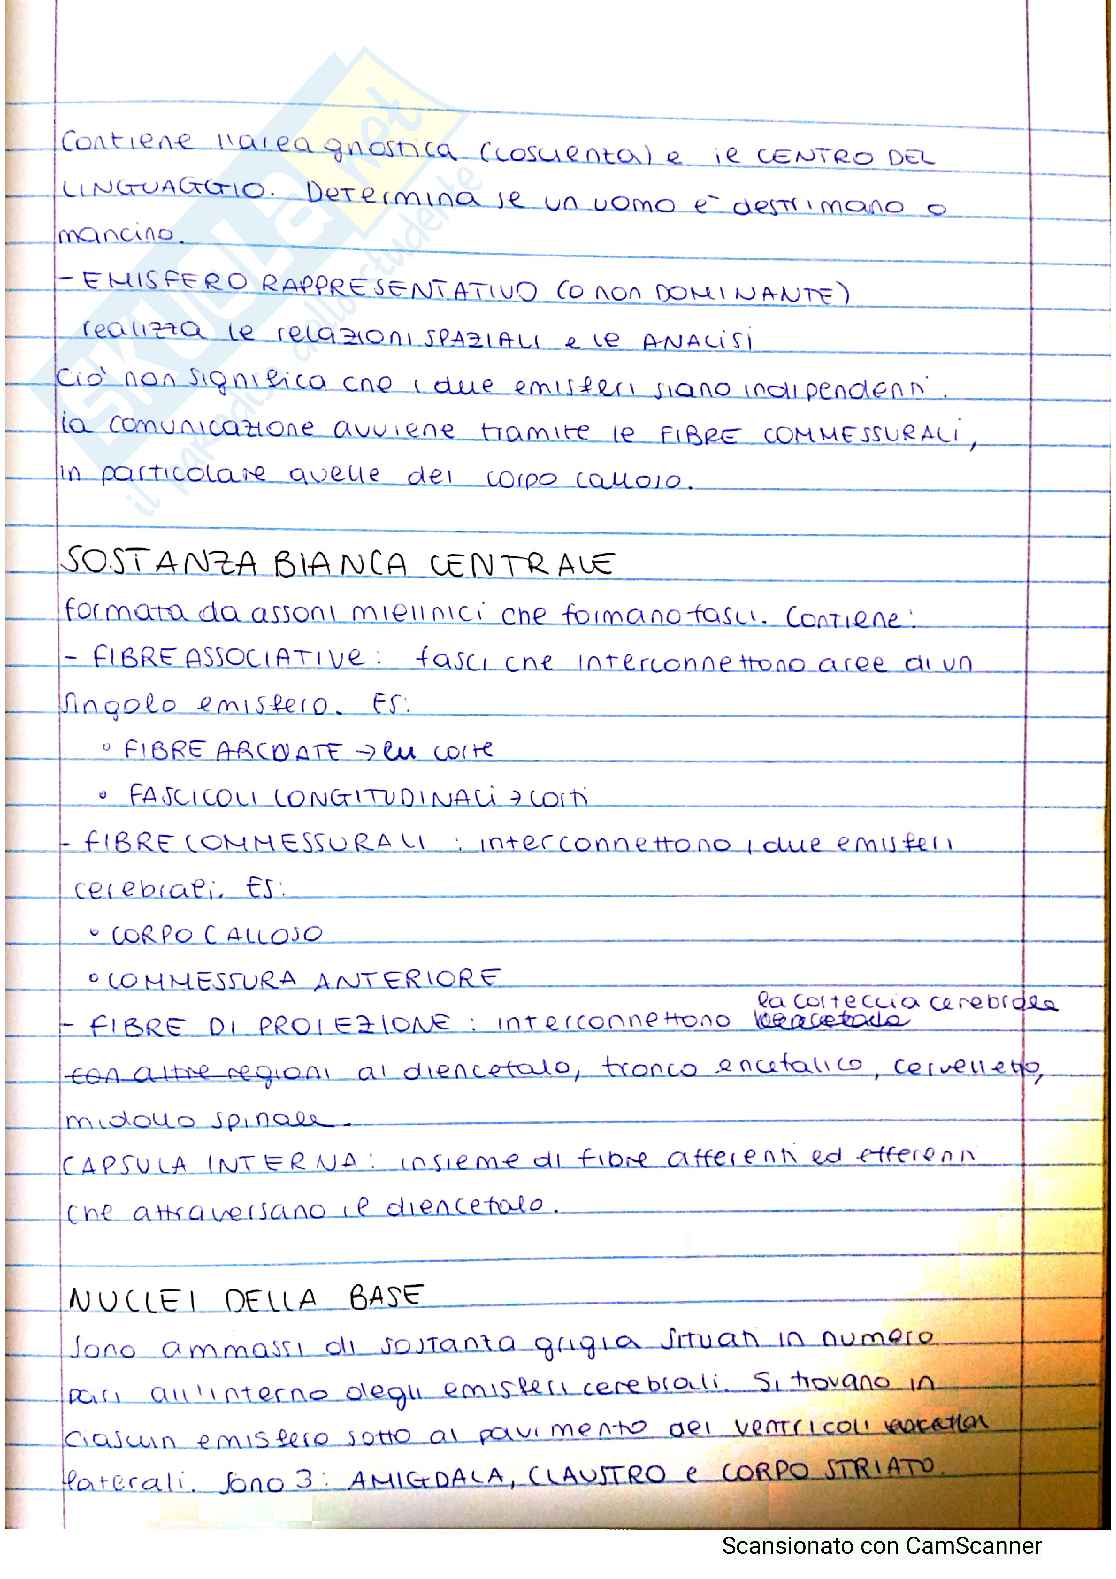 Contiene l'area gnostica (coscienza) e il CENTRO DEL
LINGUAGGIO. Determina se un uomo è destrimano o
mancino.
- EMISFERO RAPPRESENTATIVO (O NON DOMINANTE)
realizza le relazioni SPAZIALI e le ANALISI
Ciò non significa che i due emisferi siano indipendenti.
la comunicazione avviene tramite le FIBRE COMMESSURALI,
in particolare quelle del corpo calloso.
SOSTANZA BIANCA CENTRALE
formata da assoni mielinici che formano fasci. Contiene:
- FIBRE ASSOCIATIVE: fasci che interconnettono aree di un
singolo emisfero. ES:
◦ FIBRE ARCUATE → corte
◦ FASCICOLI LONGITUDINALI →
- FIBRE COMMESSURALI: interconnettono i due emisferi
cerebrali. ES:
◦ CORPO CALLOSO
◦ COMMESSURA ANTERIORE
la corteccia cerebrale
- FIBRE DI PROIEZIONE: interconnettono
con altre regioni al diencefalo, tronco encefalico, cervelletto,
midollo spinale.
CAPSULA INTERNA: insieme di fibre afferenti ed efferenti
che attraversano il diencefalo.
NUCLEI DELLA BASE
Sono ammassi di sostanza grigia situati in numero
pari all'interno degli emisferi cerebrali. Si trovano in
ciascun emisfero sotto al pavimento dei ventricoli
laterali. Sono 3: AMIGDALA, CLAUSTRO e CORPO STRIATO.
SKUOLA.not
il paradiso dello studente
Scansionato con CamScanner